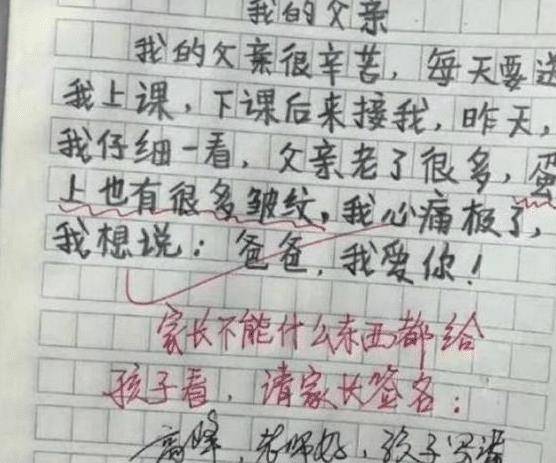 我的父亲
我的父亲很辛苦，每天要送
我上课，下课后来接我，昨天，
我仔细一看，父亲老了很多，
上也有很多皱纹，我心痛极了，
我想说：爸爸，我爱你！
家长不能什么东西都给
孩子看，请家长签名：
高峰，老师好，孩子写